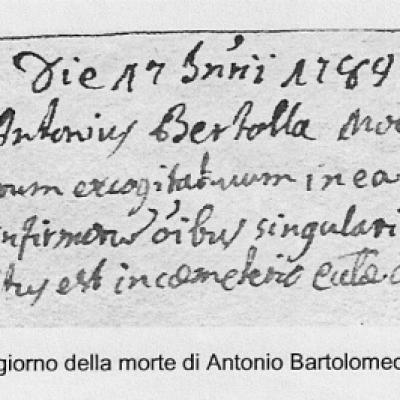 Die 17 Jn̄rii 1789
Antonius Bertolla
excogitatuum in ea
infirmorū oībus singulari
tus est in cœmeterio
giorno della morte di Antonio Bartolomeo